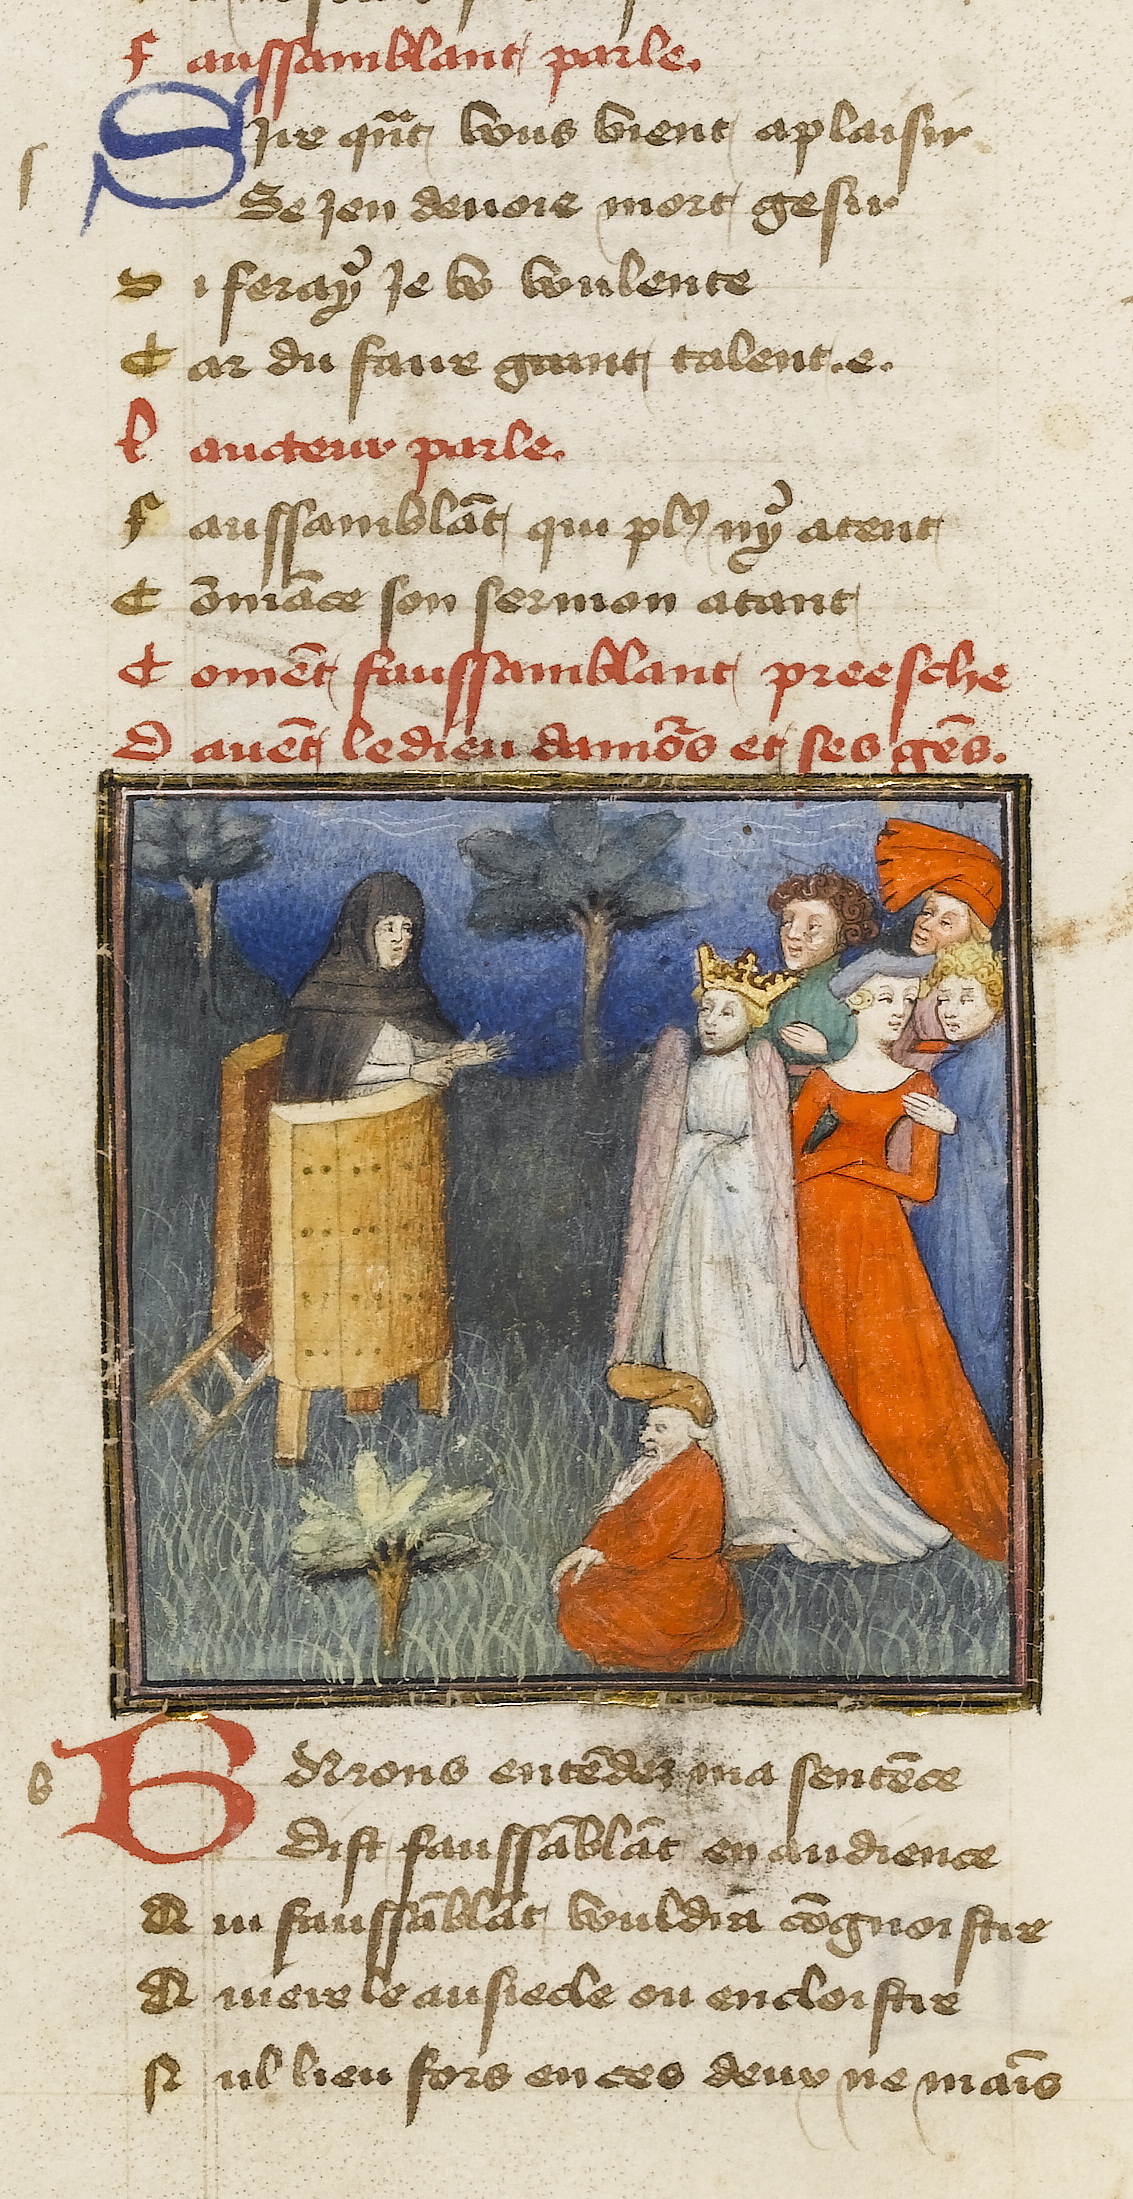 F aussamblant parle.
Sire qñt vous vient a plaisir
Se jen devoie mort gesir
Si feray je vo voulente
C ar du faire gaint talent.e.
L aucteur parle.
F aussamblãt qui pl9 ny atent
C õmãce son sermon atant
C omẽt faussamblant preesche
D avẽt le dieu damõs et ses gẽs.
s
B Arons entẽdez ma sentẽce
b
Dist faussãblãt en audience
Q ui faussãblãt vouldra cõgnoistre
Q uiere le au siecle ou en cloistre
N ul lieu fors en ces deux ne mais